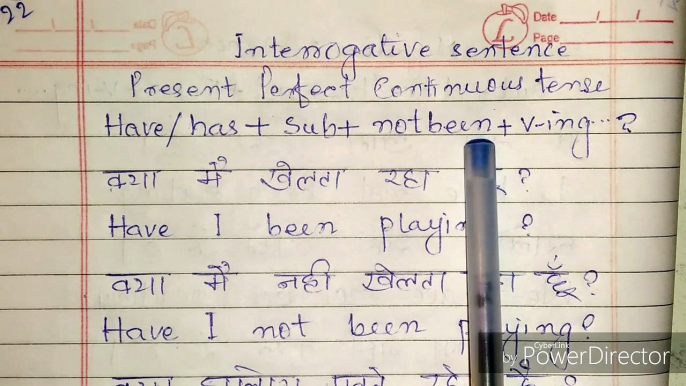 22
Date
Page
Interrogative sentence
Present Perfect Continuous tense
Have/has + Sub + not been + v-ing...?
क्या मैं खेलता रहा ?
Have I been playing ?
क्या मैं नही खेलता हूँ?
Have I not been playing?
by PowerDirector
CyberLink
क्या